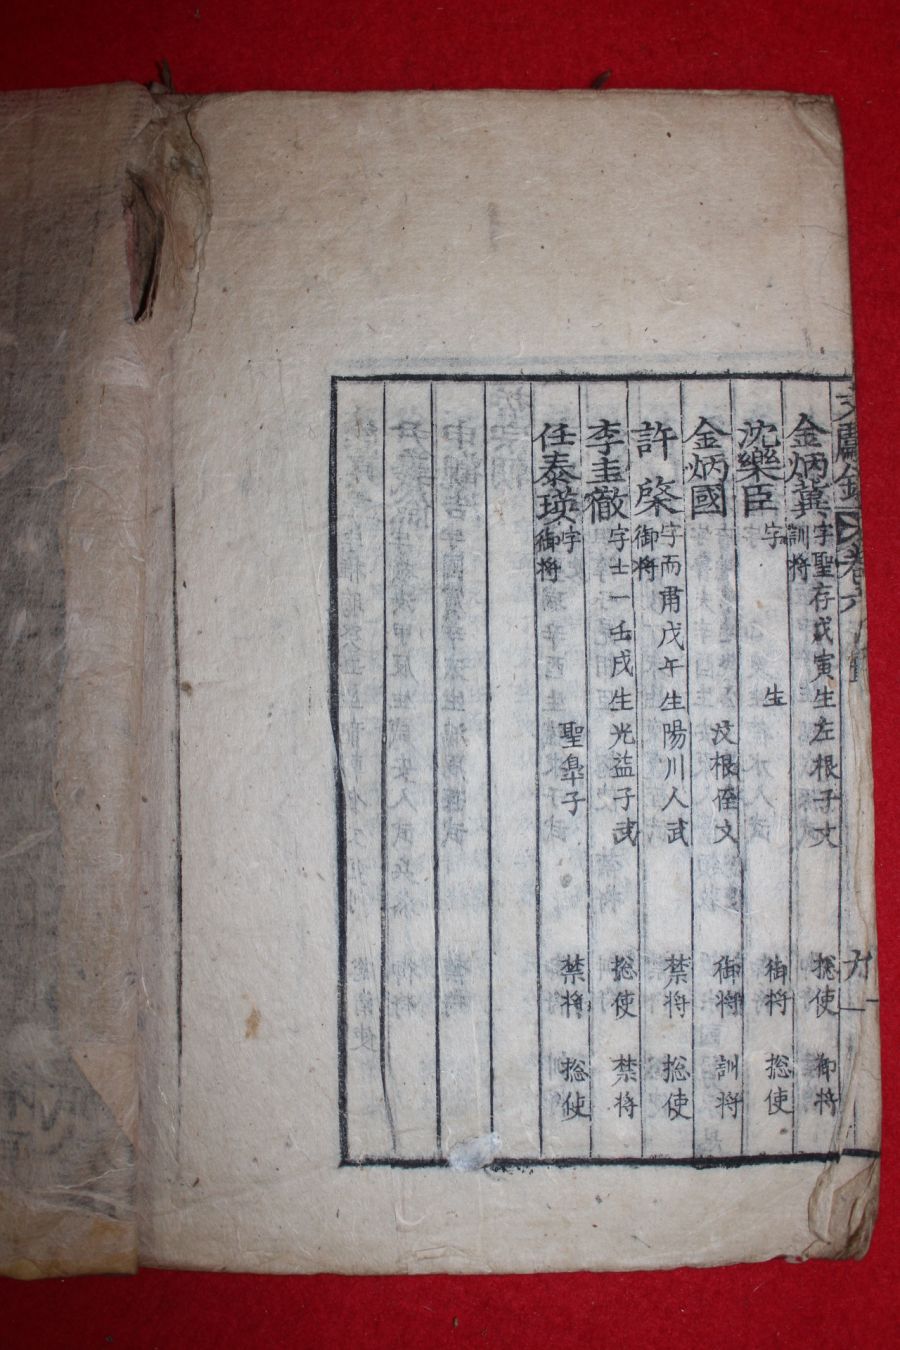 文獻錄 卷六
金炳冀 字聖存戊寅生左根子文 揔使 御將
訓將
沈樂臣 字 生 御將 揔使
金炳國 汶根侄文 御將 訓將
許棨 字而肅戊午生陽川人武 禁將 揔使
御將
李圭徹 字士一壬戌生光益子武 揔使 禁將
任泰瑛 字 聖皐子 禁將 揔使
御將